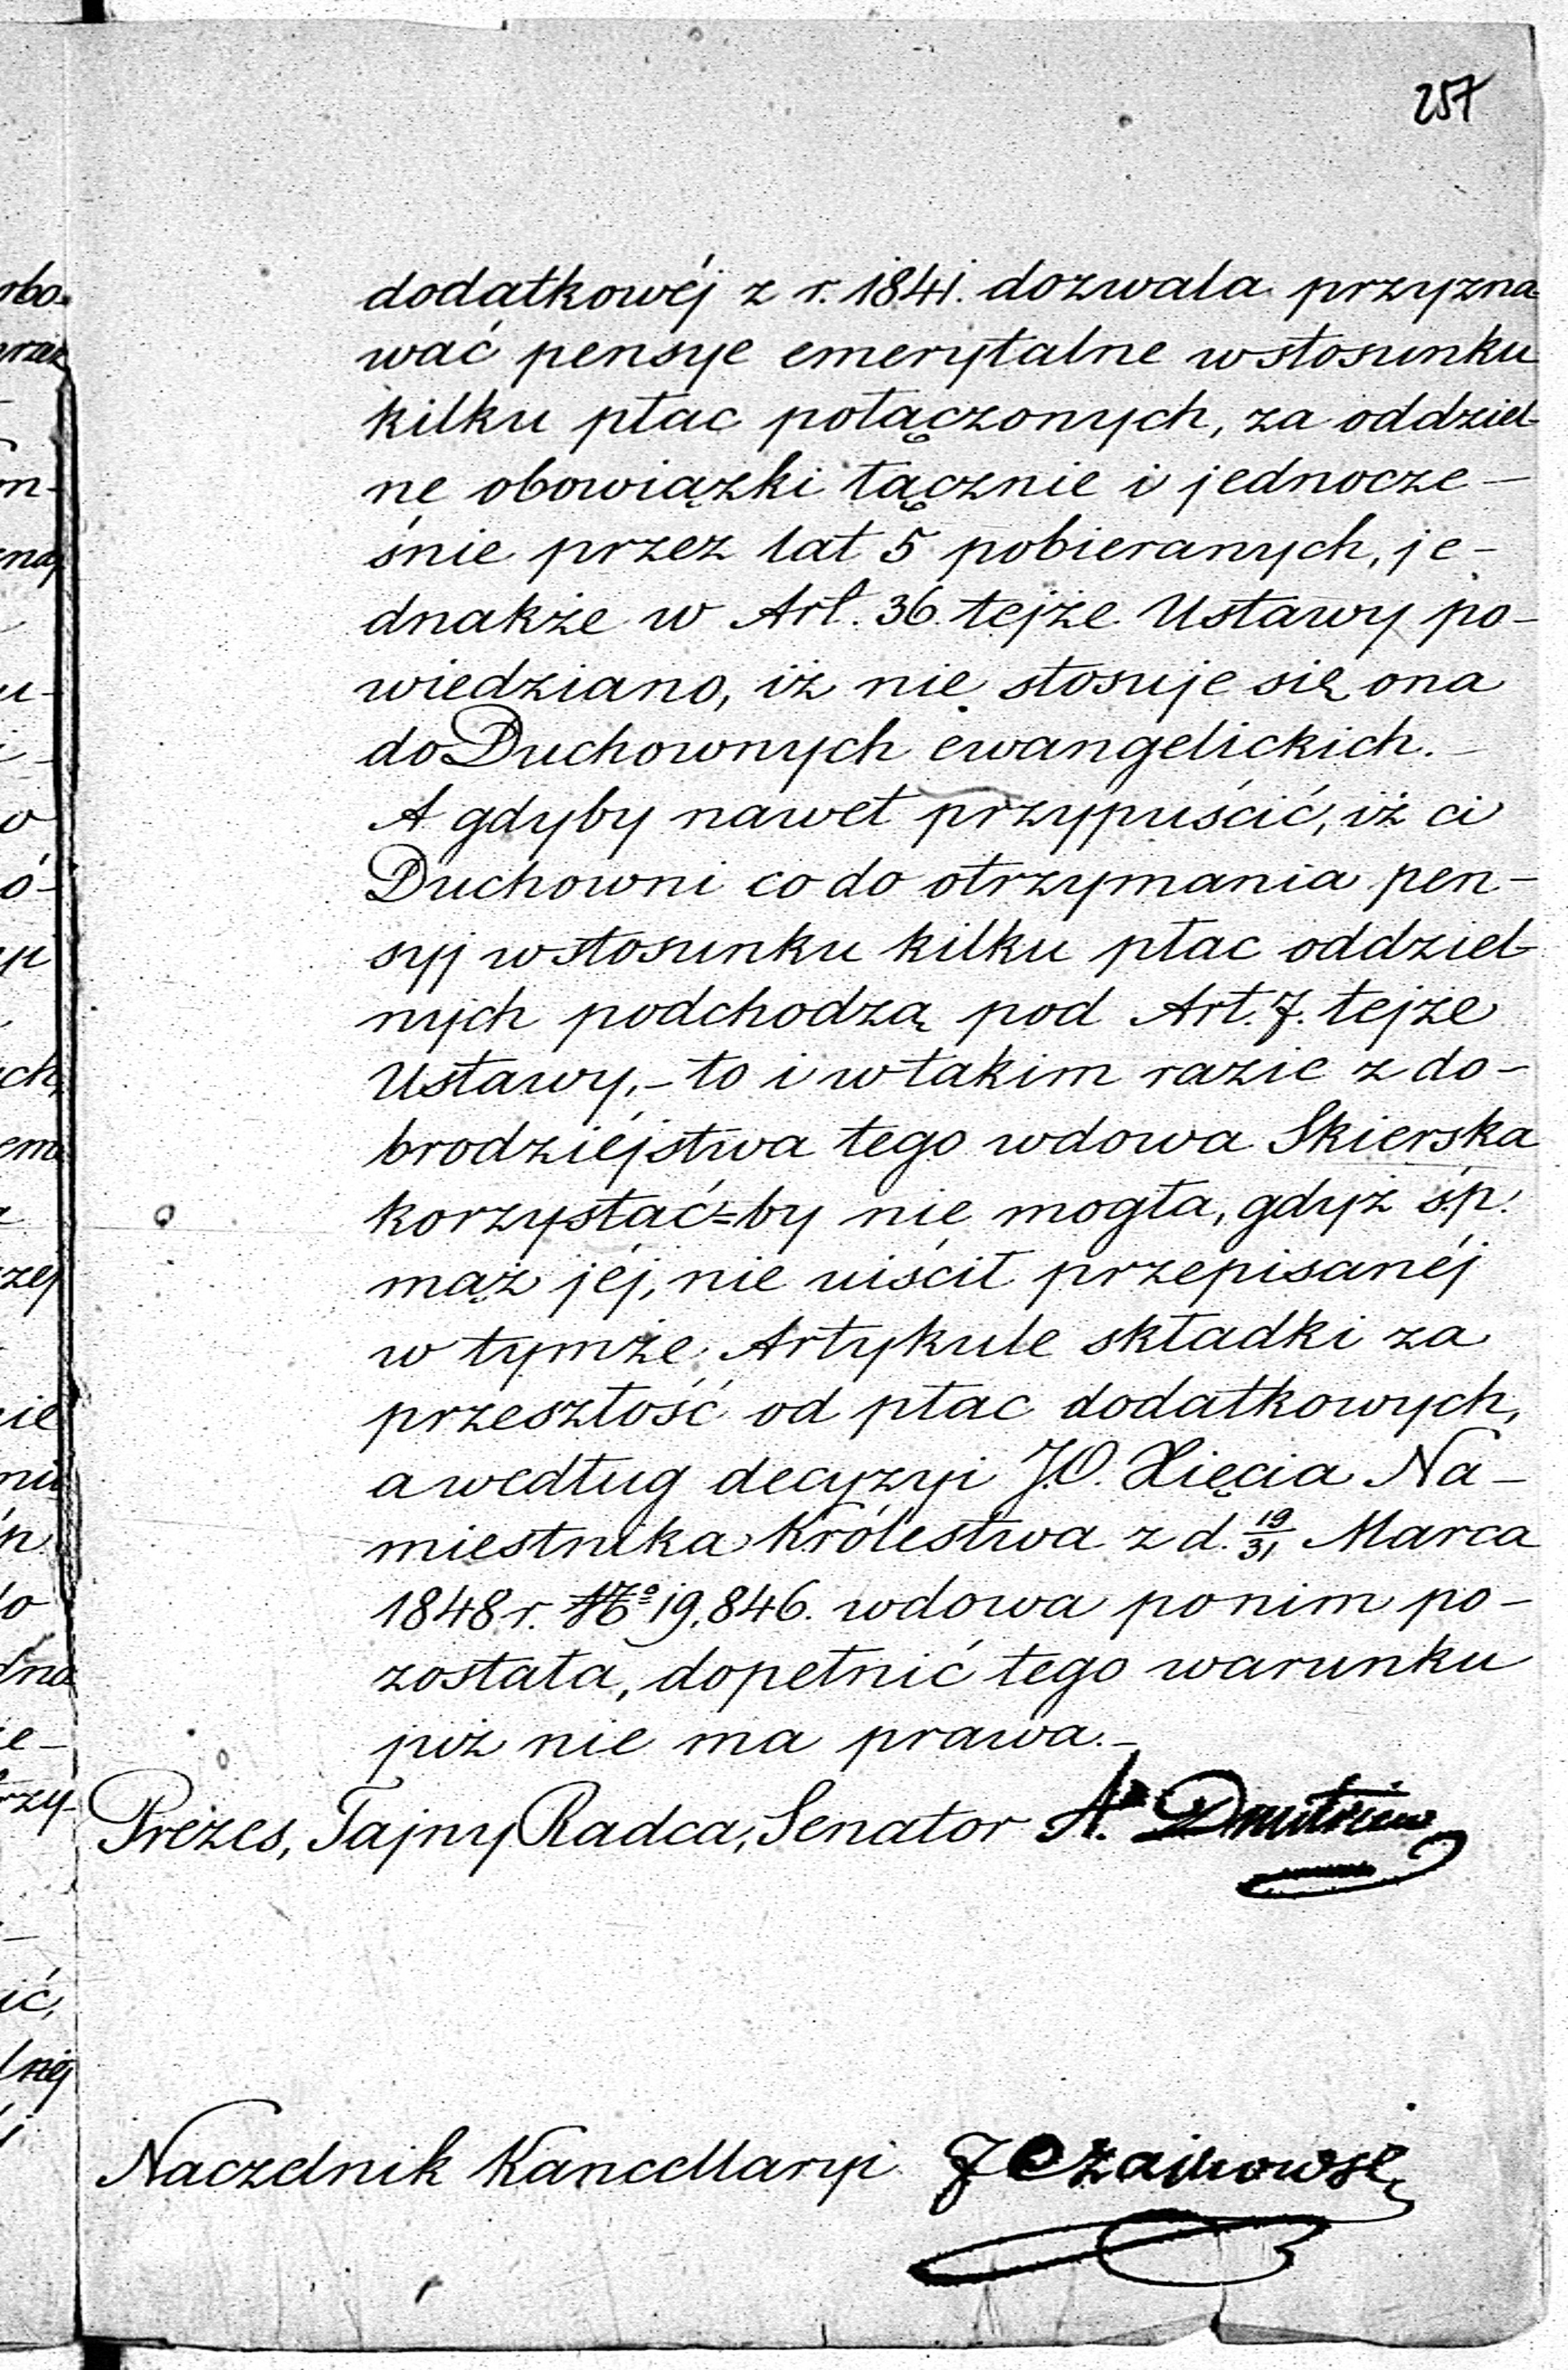 257
dodatkowéj z r. 1841. dozwala przyzna-
wać pensye emerytalne w stosunku
kilku płac połączonych, za oddziel-
ne obowiązki łącznie i jednocze-
śnie przez lat 5 pobieranych, je-
dnakże w Art. 36 tejże Ustawy po-
wiedziano, iż nie stosuje się ona
do Duchownych ewangelickich.
A gdyby nawet przypuścić, iż ci
Duchowni co do otrzymania pen-
syj w stosunku kilku płac oddziel-
nych podchodzą pod Art. 7. tejże
Ustawy, - to i w takim razie z do-
brodziejstwa tego wdowa Skierska
korzystać=by nie mogła, gdyż ś.p.
mąż jéj, nie uiścił przepisanéj
w tymże Artykule składki za
przeszłość od płac dodatkowych,
a według decyzyi J.O. Xięcia Na-
miestnika Królestwa z d. 19/31 Marca
1848 r. No 19,846. wdowa po nim po-
została, dopełnić tego warunku
już nie ma prawa. -
Prezes, Tajny Radca, Senator A. Dmitriew
Naczelnik Kancellaryi